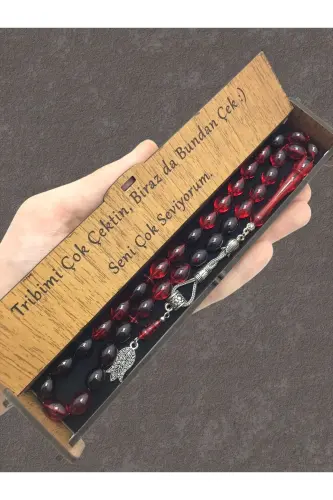 Tribimi Çok Çektin, Biraz da Bundan Çek :)
Seni Çok Seviyorum.